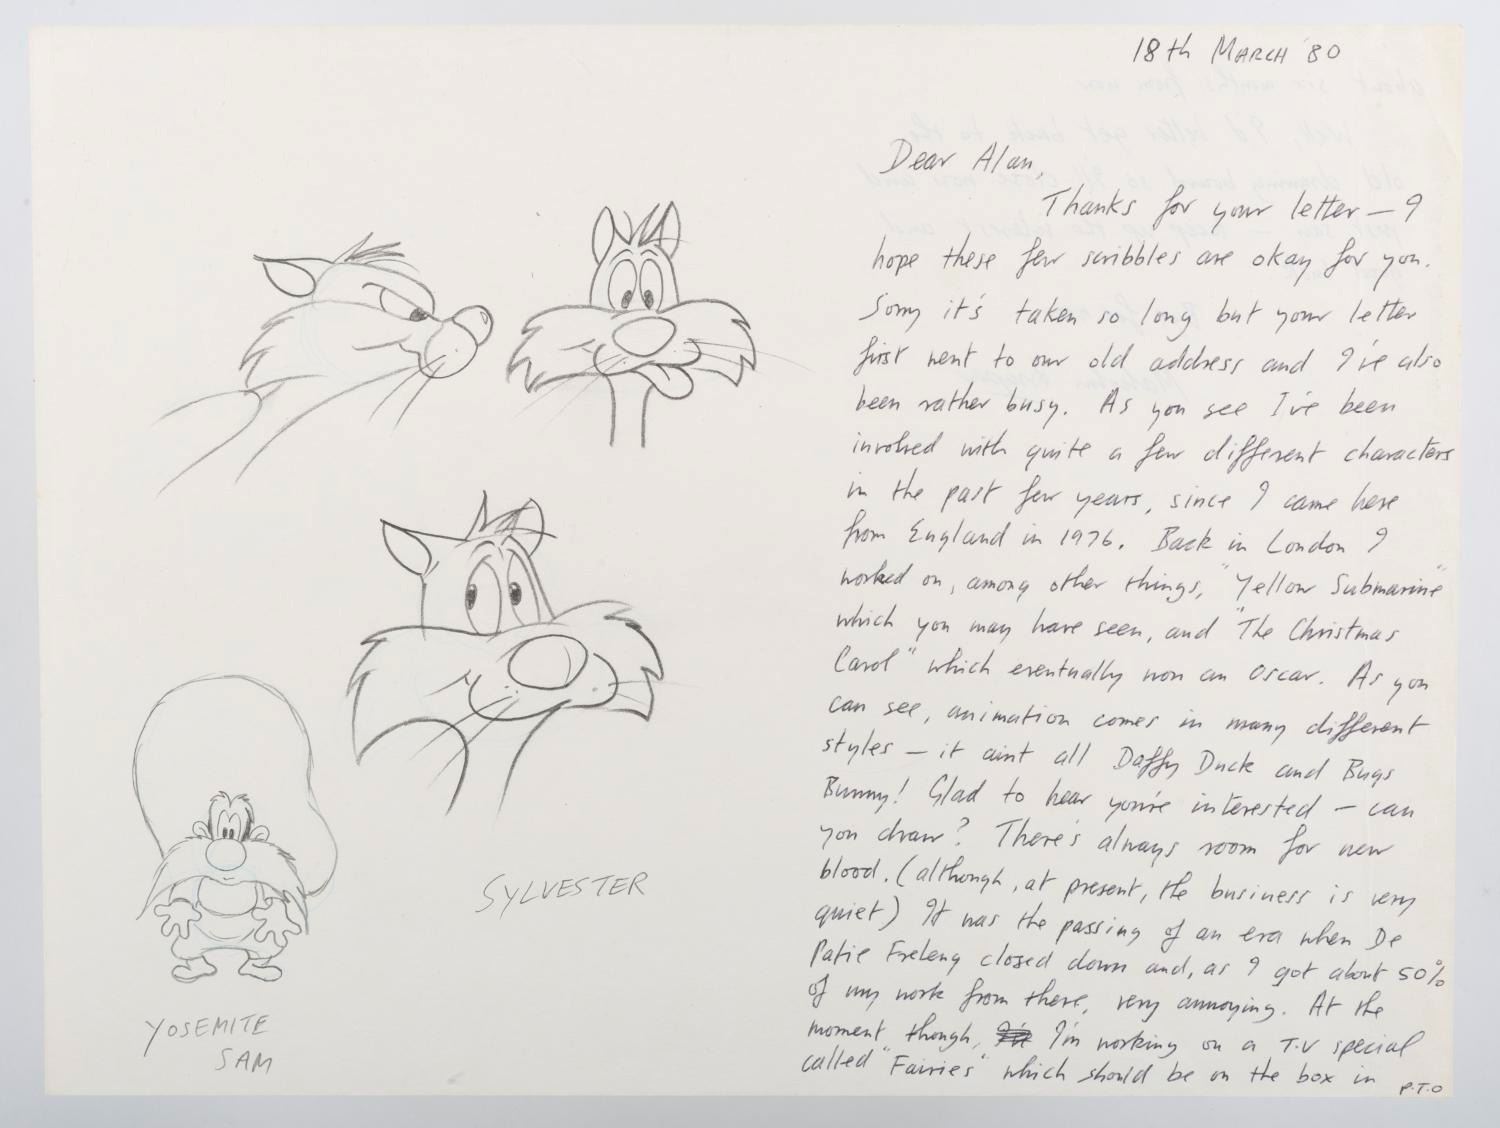 18th March '80
Dear Alan,
Thanks for your letter — I
hope these few scribbles are okay for you.
Sorry it's taken so long but your letter
first went to our old address and I've also
been rather busy. As you see I've been
involved with quite a few different characters
in the past few years, since I came here
from England in 1976. Back in London I
worked on, among other things, "Yellow Submarine"
which you may have seen, and "The Christmas
Carol" which eventually won an Oscar. As you
can see, animation comes in many different
styles — it aint all Daffy Duck and Bugs
Bunny! Glad to hear you're interested — can
you draw? There's always room for new
blood. (although, at present, the business is very
quiet) It was the passing of an era when De
Patie Freleng closed down and, as I got about 50%
of my work from there, very annoying. At the
moment, though, I'm working on a T.V special
called "Fairies" which should be on the box in
P.T.O
SYLVESTER
YOSEMITE
SAM